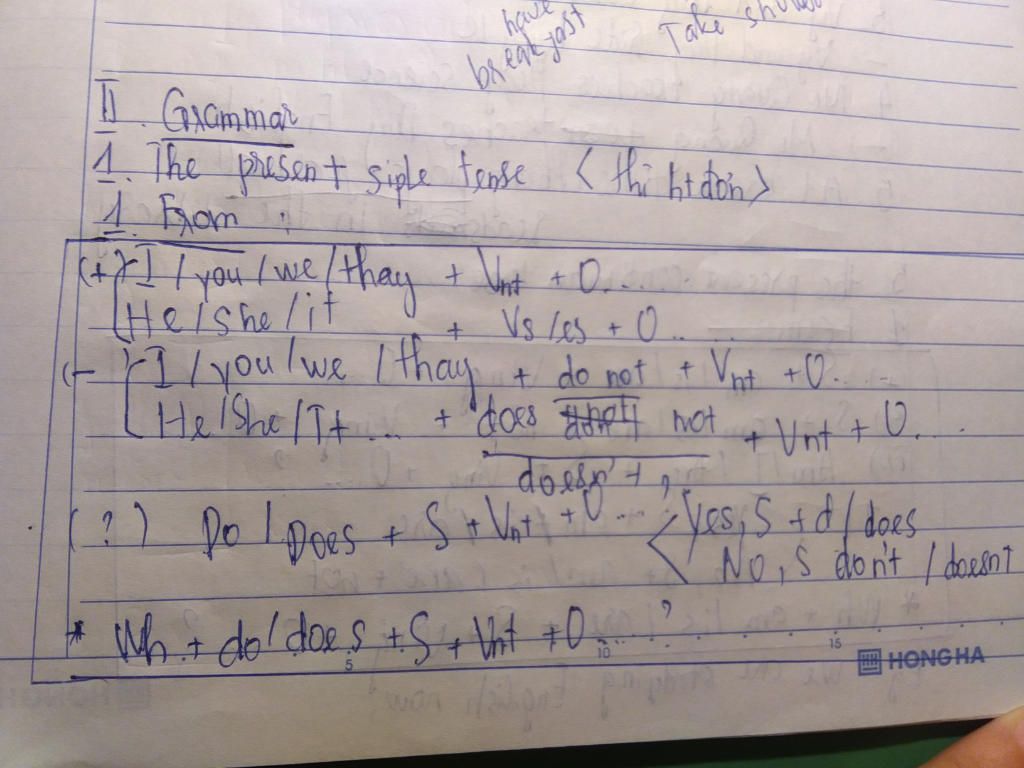 have
breakfast
Take shower
II. Grammar
1. The present siple tense < thì htđơn >
1. From :
(+) I / you / we / thay + Vnt + O....
He / she / it + Vs/es + O...
(- I / you / we / thay + do not + Vnt + O....
He / She / It ... + does not + Vnt + O....
doesn't
(?) Do / Does + S + Vnt + O... ? Yes, S + d / does
No, S don't / doesnt
* Wh + do / does + S + Vnt + O...?
5 10 15
HONG HA